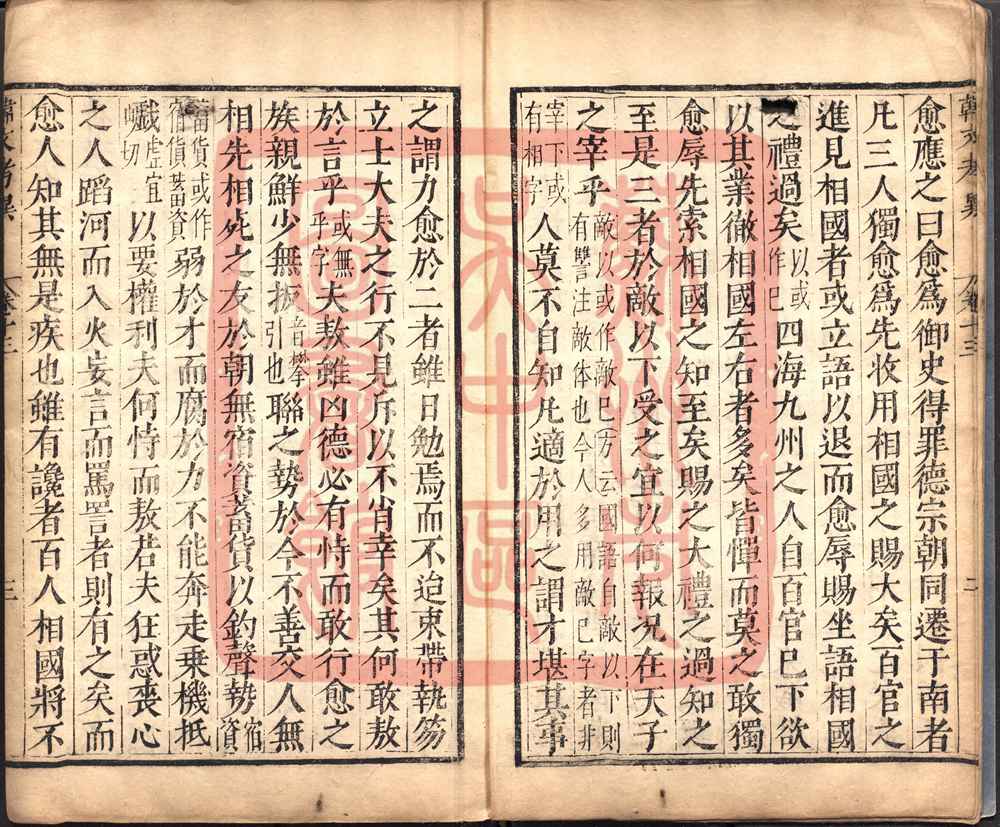 愈應之曰愈爲御史得罪德宗朝同遷于南者
凡三人獨愈爲先收用相國之賜大矣百官之
進見相國者或立語以退而愈辱賜坐語相國
之禮過矣以或作巳四海九州之人自百官巳下欲
以其業徹相國左右者多矣皆憚而莫之敢獨
愈辱先索相國之知至矣賜之大禮之過知之
至是三者於敵以下受之宜以何報况在天子
之宰乎敵以或作敵巳方云國語自敵以下則有讐注敵体也今人多用敵巳字者非
宰下或有相字人莫不自知凡適於用之謂才堪其事
之謂力愈於二者雖日勉焉而不迨束帶執笏
立士大夫之行不見斥以不肖幸矣其何敢敖
於言乎或無乎字夫敖雖凶德必有恃而敢行愈之
族親鮮少無扳音攀引也聯之勢於今不善交人無
相先相死之友於朝無宿資蓄貨以釣聲勢宿資
蓄貨或作宿貨蓄資弱於才而腐於力不能奔走乗機抵
巇戲虛宜切以要權利夫何恃而敖若夫狂惑喪心
之人蹈河而入火妄言而罵詈者則有之矣而
愈人知其無是疾也雖有讒者百人相國將不
韓文考異
卷十三
二
三